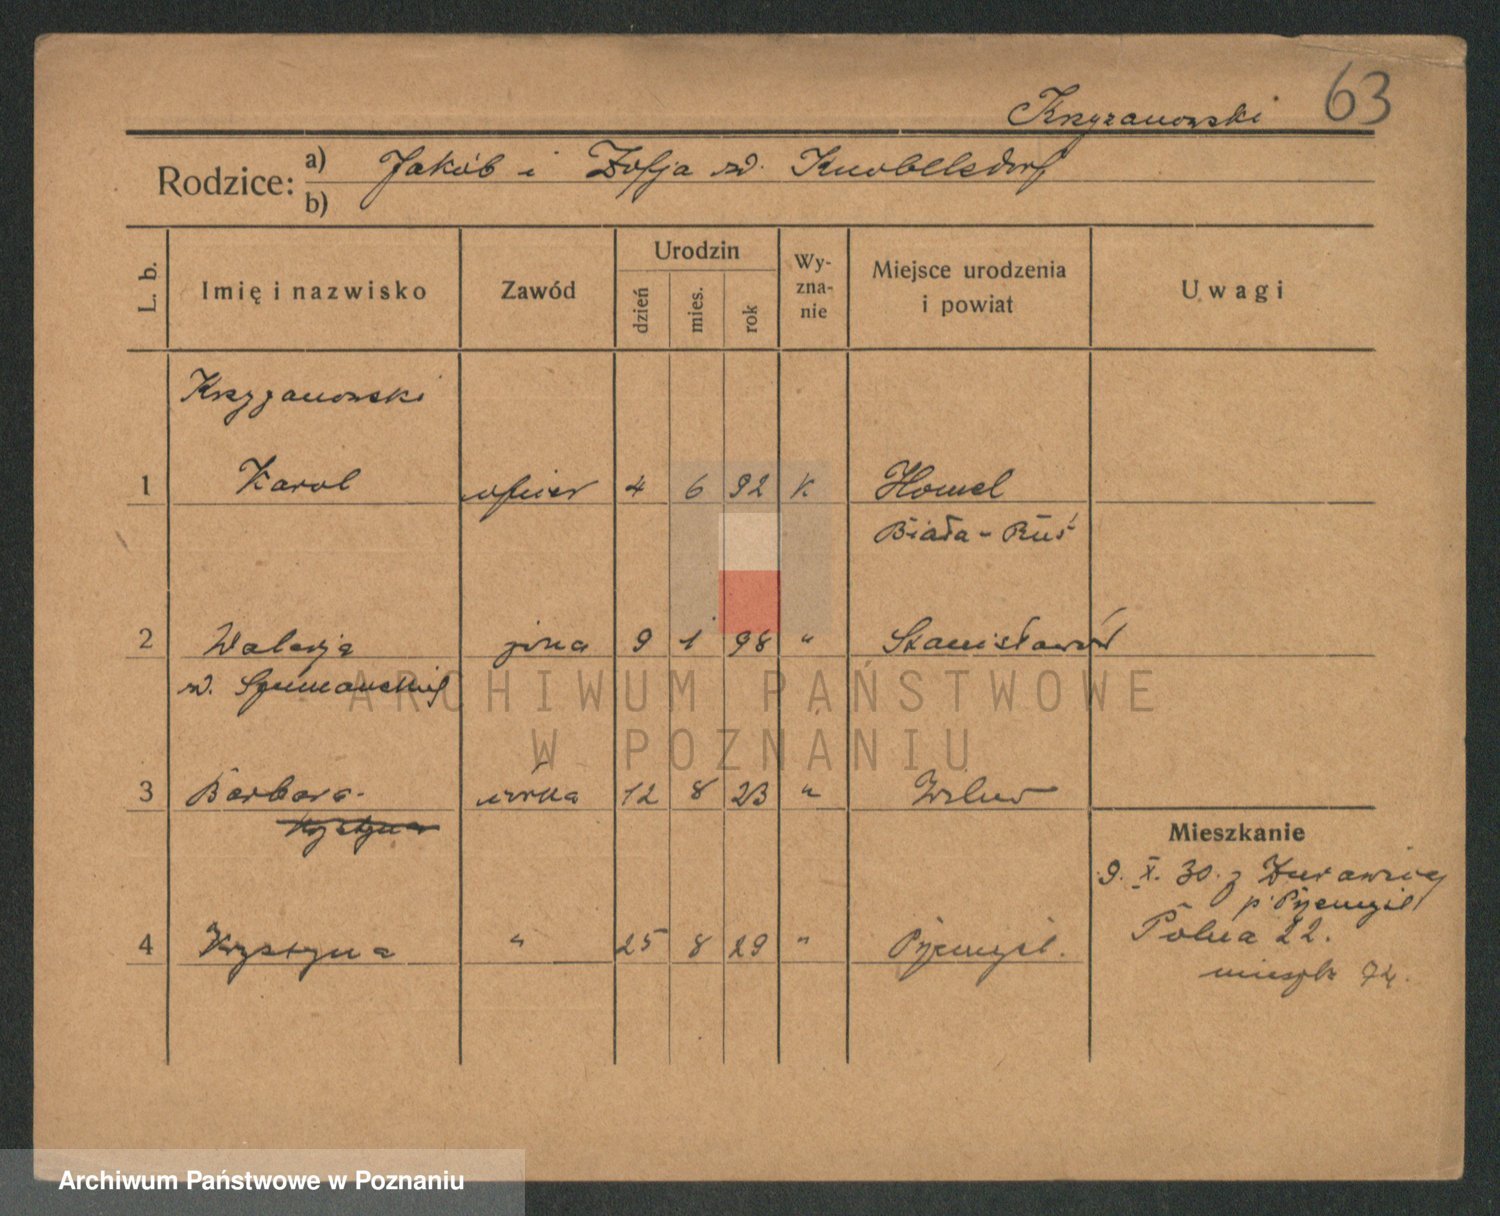 Krzyżanowski 63
Rodzice: a) Jakób i Zofja zd. Knobelsdorf
b)
L. b. Imię i nazwisko Zawód Urodzin dzień mies. rok Wy-zna-nie Miejsce urodzenia i powiat Uwagi
Krzyżanowski
1 Karol oficer 4 6 92 K Homel
Biała-Ruś
2 Walerja żona 9 1 98 " Stanisławów
zd. Szumańskich
3 Barbara córka 12 8 23 " Wilno
Krystyna
Mieszkanie
9. X. 30. z Żurawicy
p. Przemyśl
4 Krystyna " 25 8 29 " Przemyśl.
Polna 22.
mieszk 72.
ARCHIWUM PAŃSTWOWE
W POZNANIU
Archiwum Państwowe w Poznaniu